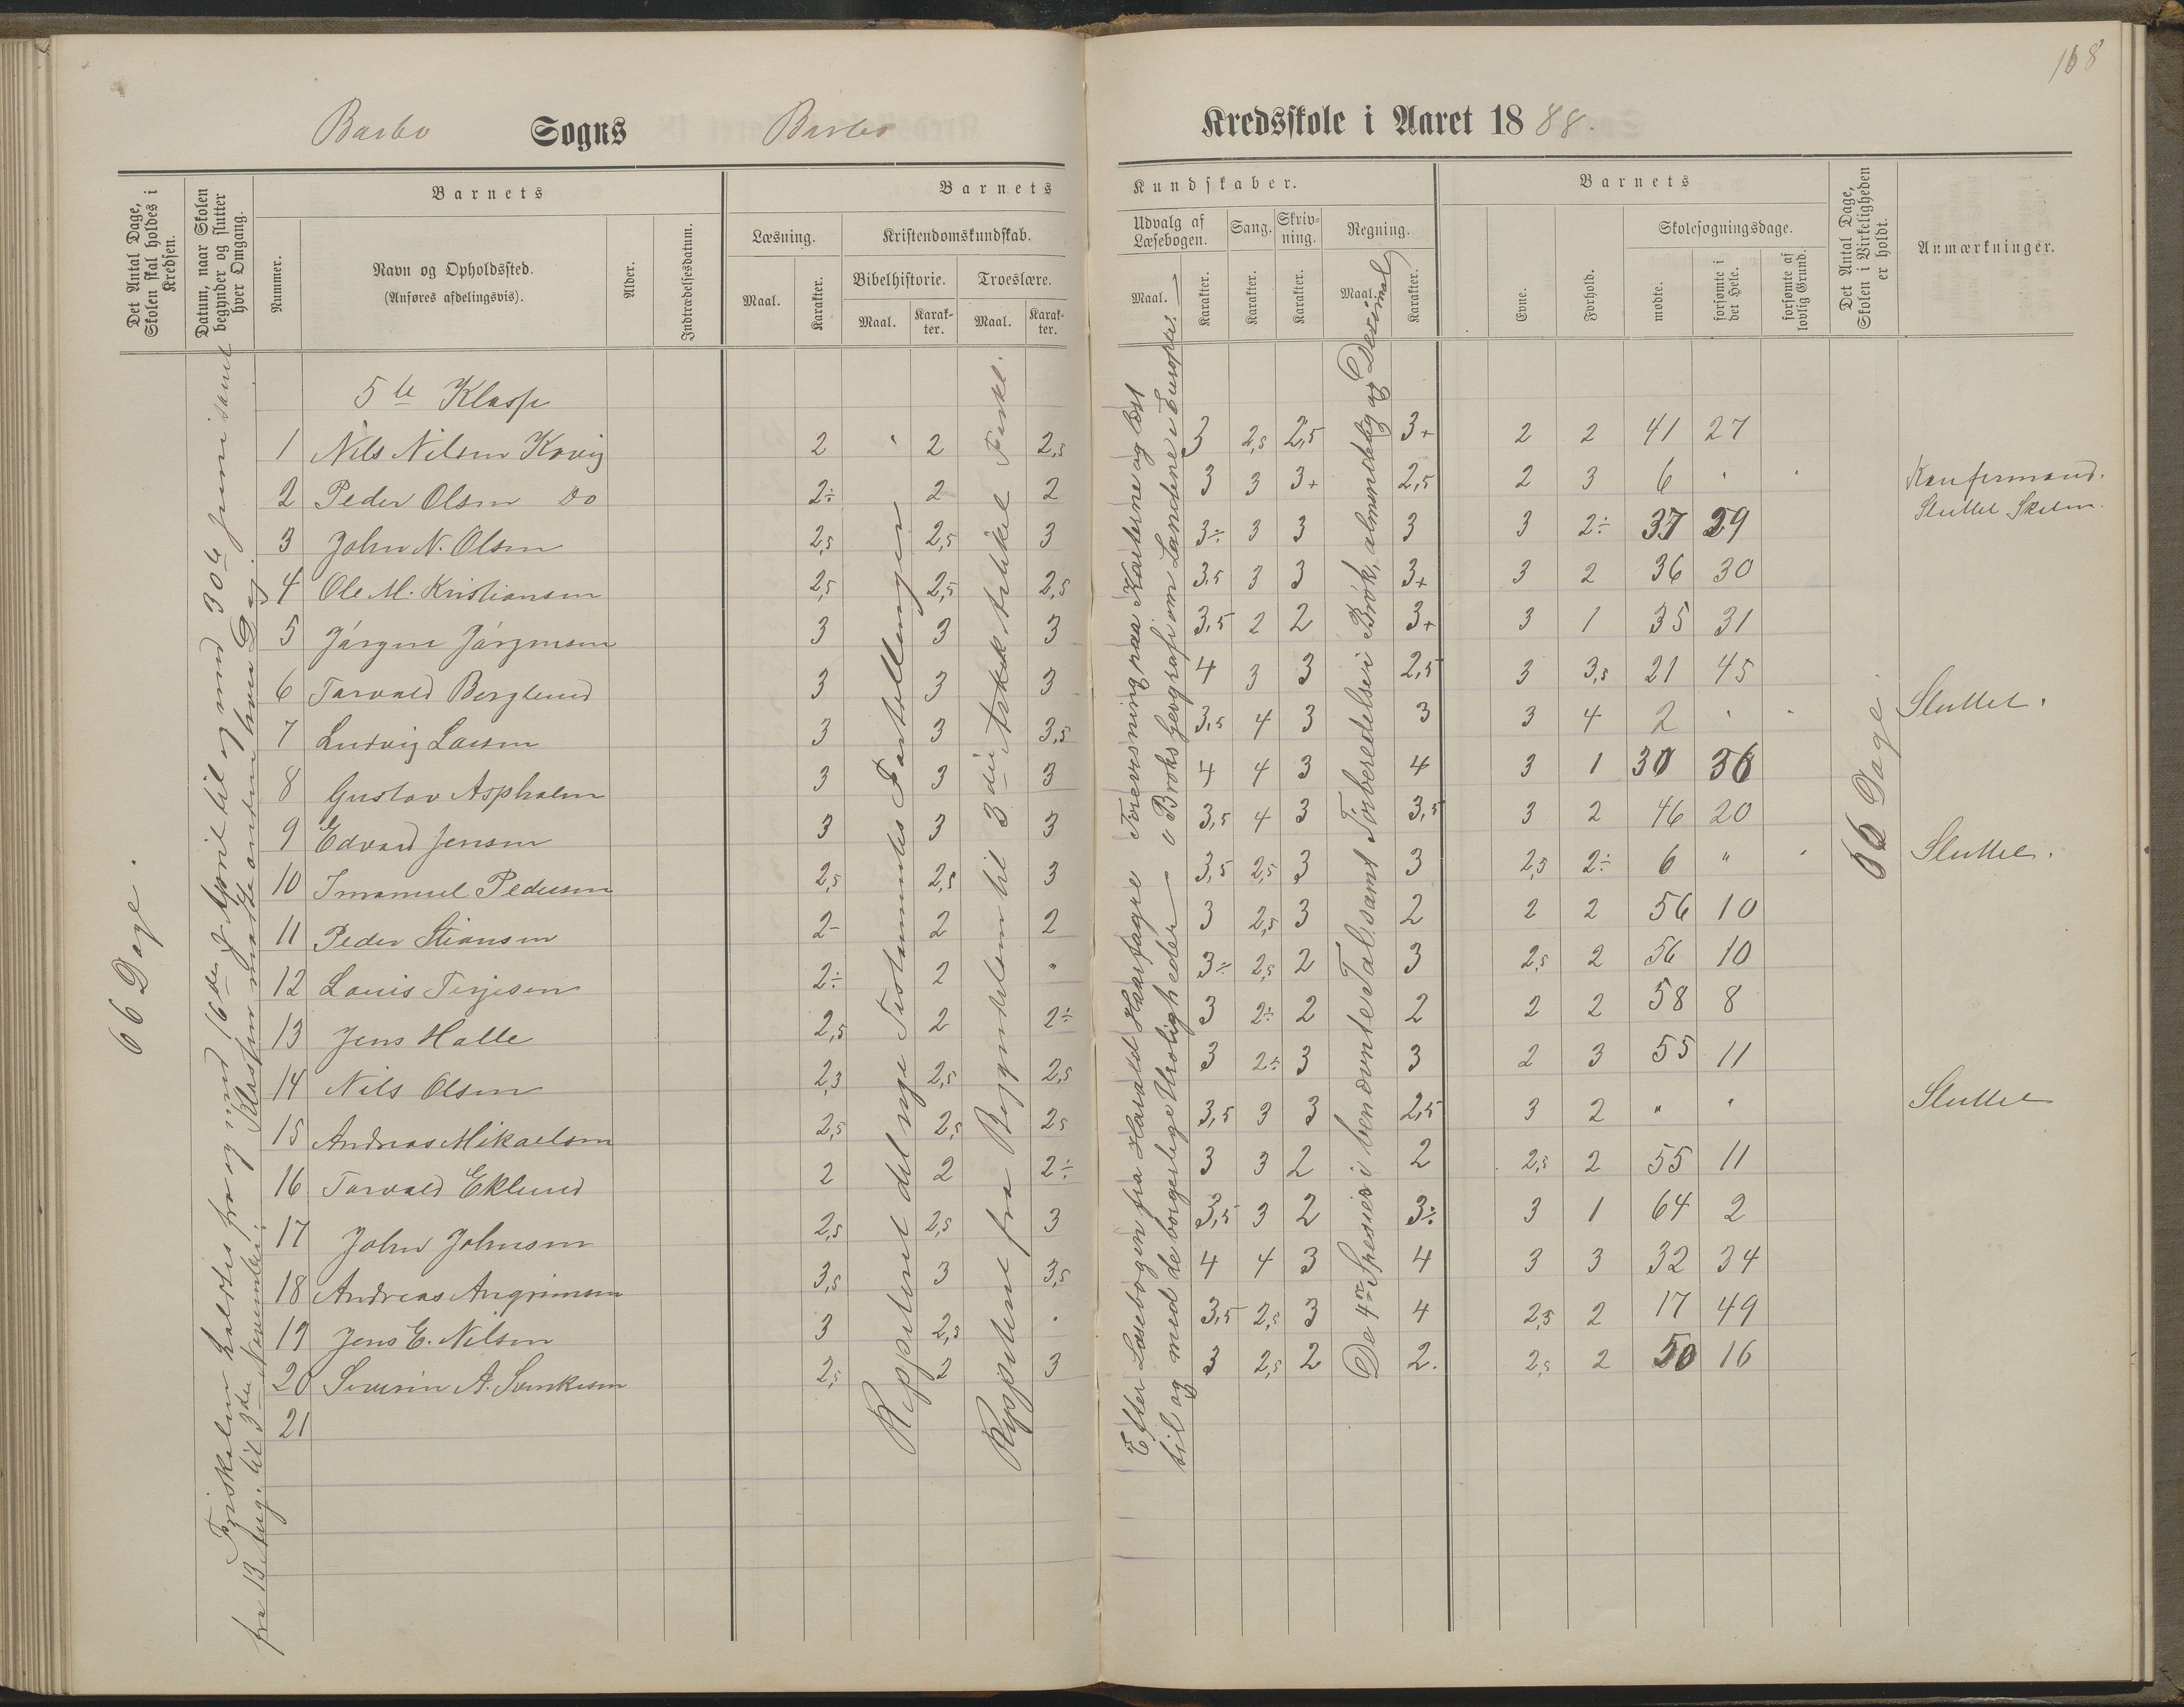 168
Barbo Sogns Barbo Kredsskole i Aaret 1888.
Det Antal Dage, Skolen skal holdes i Kredsen.
Datum, naar Skolen begynder og slutter hver Omgang.
Barnets
Nummer.
Navn og Opholdssted.
(Anføres afdelingsvis).
Alder.
Indtrædelsesdatum.
Barnets Kundskaber.
Læsning.
Maal.
Karakter.
Kristendomskundskab.
Bibelhistorie.
Maal.
Karakter.
Troeslære.
Maal.
Karakter.
Udvalg af Læsebogen.
Maal.
Karakter.
Sang.
Karakter.
Skrivning.
Karakter.
Regning.
Maal.
Karakter.
Barnets
Evne.
Forhold.
Skolesøgningsdage.
mødte.
forsømte i det Hele.
forsømte af lovlig Grund.
Det Antal Dage, Skolen i Virkeligheden er holdt.
Anmærkninger.
66 Dage.
Friskolen holdtes fra og med 16de April til og med 30te Juni samt
fra 13 Aug. til 3die November. Klassen mødte anden hver Dag.
Reppeteret det nye Testamentes Fortellinger
Reppeteret fra Begyndelsen til 3die Artikel Forkl.
Efter Læsebogen fra Harald Haarfagre Forevisning paa Karterne og læst
til og med de borgerlige Uroligheder — i Broks Geografi om Landene i Europa.
De 4re Spesier i benævnte Tal samt Forberedelse i Brøk, almindelig og Desimal
66 Dage.
5te Klasse
1 Nils Nilsen Kovig 2 2 2,5 3 2,5 2,5 3+ 2 2 41 27
2 Peder Olsen Do 2÷ 2 2 3 3 3+ 2,5 2 3 6 " " Konfirmand. Sluttet Skolen.
3 John N. Olsen 2,5 2,5 3 3÷ 3 3 3 3 2÷ 37 29
4 Ole M. Kristiansen 2,5 2,5 2,5 3,5 3 3 3+ 3 2 36 30
5 Jørgen Jørgensen 3 3 3 3,5 2 2 3+ 3 1 35 31
6 Torvald Berglund 3 3 3 4 3 3 2,5 3 3,5 21 45
7 Ludvig Larsen 3 3 3,5 3,5 4 3 3 3 4 2 " " Sluttet.
8 Gustav Aspholm 3 3 3 4 4 3 4 3 1 30 36
9 Edvard Jensen 3 3 3 3,5 4 3 3,5 3 2 46 20
10 Imanuel Pedersen 2,5 2,5 3 3,5 2,5 3 3 2,5 2÷ 6 " " Sluttet.
11 Peder Stiansen 2- 2 2 3 2,5 3 2 2 2 56 10
12 Louis Terjesen 2÷ 2 " 3÷ 2,5 2 3 2,5 2 56 10
13 Jens Halle 2,5 2 2÷ 3 2÷ 2 2 2 2 58 8
14 Nils Olsen 2,3 2,5 2,5 3 2÷ 3 3 2 3 55 11
15 Andreas Mikaelsen 2,5 2,5 2,5 3,5 3 3 2,5 3 2 " " Sluttet
16 Torvald Eklund 2 2 2÷ 3 3 2 2 2,5 2 55 11
17 John Johnsen 2,5 2,5 3 3,5 3 2 3÷ 3 1 64 2
18 Andreas Angrimsen 3,5 3 3,5 4 4 3 4 3 3 32 34
19 Jens E. Nilsen 3 2,5 " 3,5 2,5 3 4 2,5 2 17 49
20 Severin A. Svenksen 2,5 2 3 3 2,5 2 2. 2,5 2 50 16
21